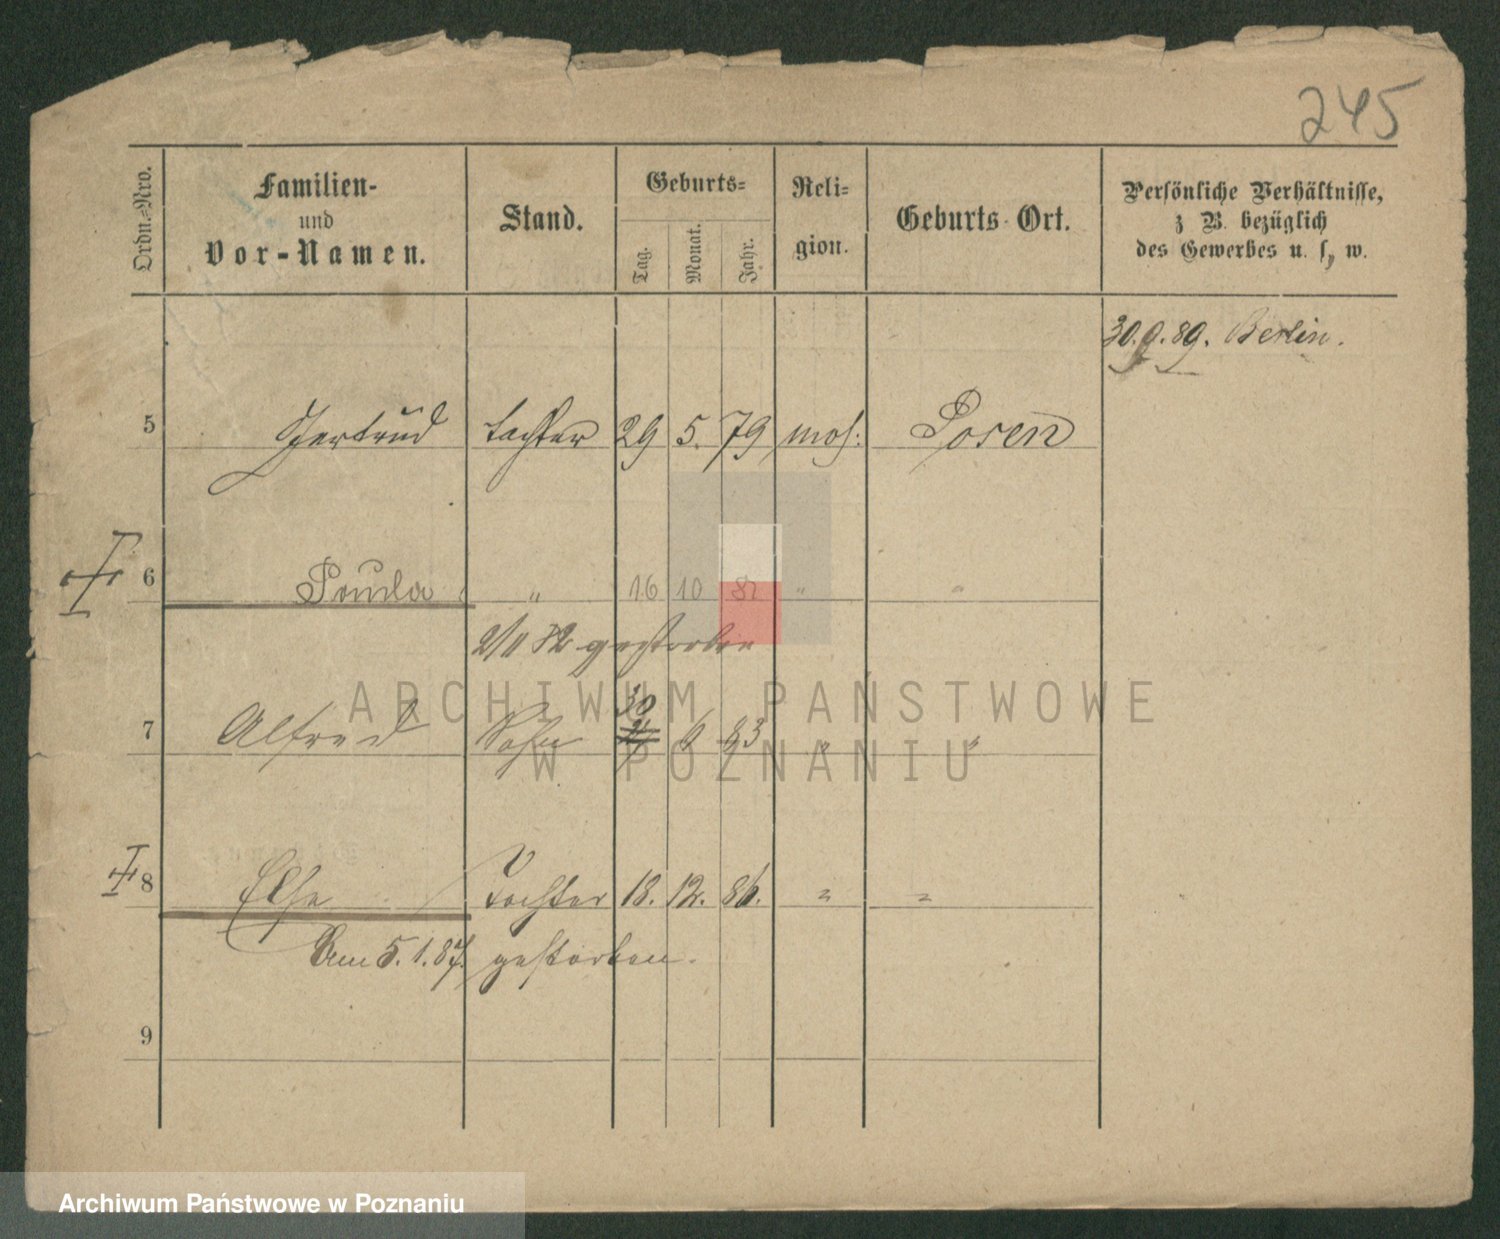 245
Ordn.-Nro.
Familien-
und
Vor-Namen.
Stand.
Geburts-
Tag.
Monat.
Jahr.
Reli-
gion.
Geburts-Ort.
Persönliche Verhältnisse,
z B. bezüglich
des Gewerbes u. s, w.
30.9.89. Berlin.
5 Gertrud Tochter 29 5. 79 mos. Posen
6 Paula " 16 10 82 " "
2/11 82 gestorben
30
7 Alfred Sohn 6 83 " "
8 Else Tochter 18. 12. 86. " "
Am 5.1.87. gestorben.
9
ARCHIWUM PAŃSTWOWE
W POZNANIU
Archiwum Państwowe w Poznaniu